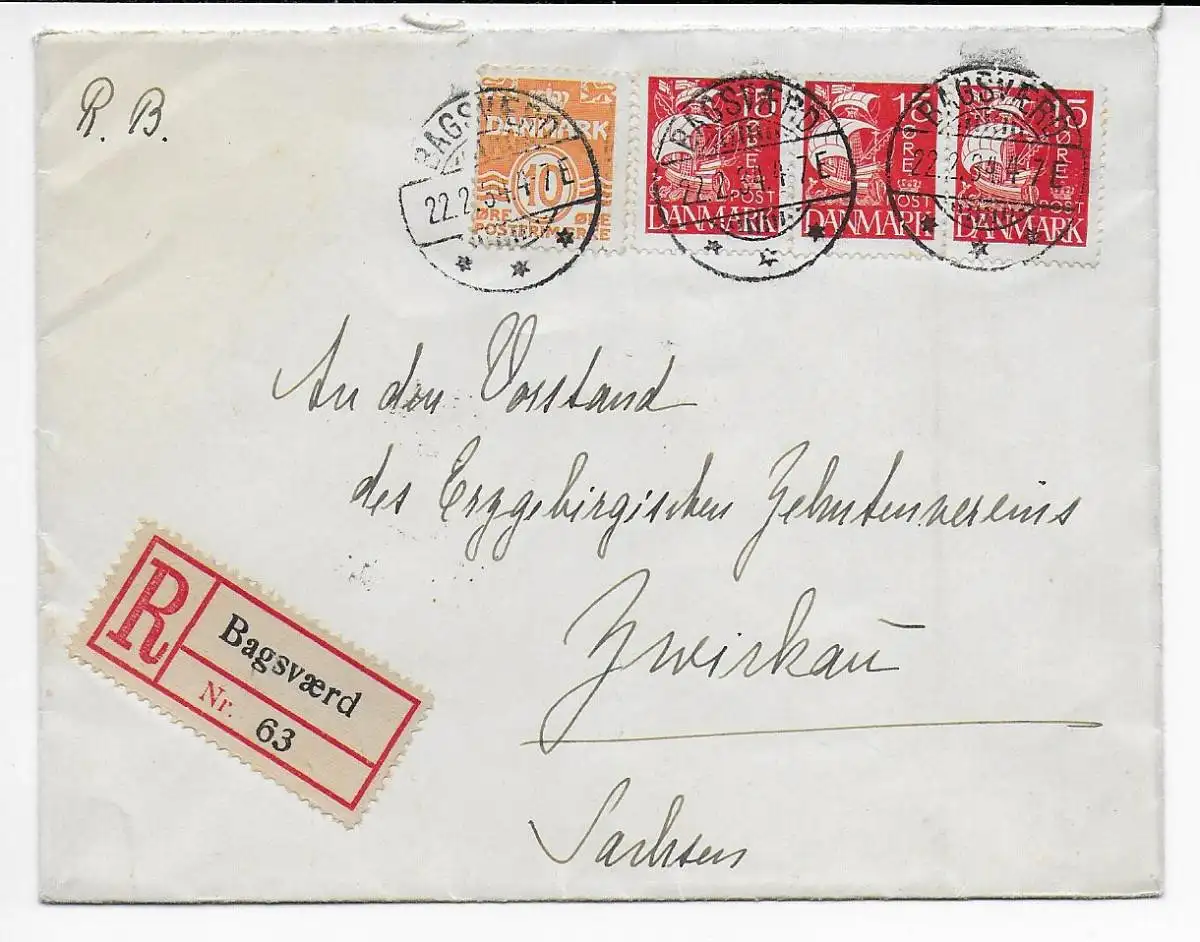 R. B.
DANMARK
10
ØRE ØRE
POSTFRIMÆRKE
15 ØRE
POST
DANMARK
15 ØRE
POST
DANMARK
15 ØRE
POST
DANMARK
BAGSVÆRD
22.2.34.4-7E
BAGSVÆRD
22.2.34.4-7E
BAGSVÆRD
22.2.34.4-7E
An den Vorstand
des Erzgebirgischen Zehntenvereins
Zwickau
Sachsen
R
Bagsværd
Nr. 63